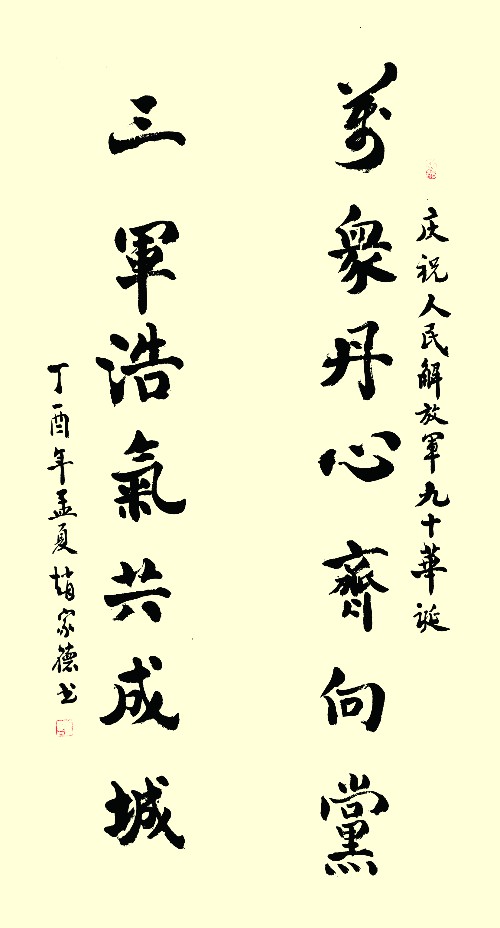 庆祝人民解放軍九十華誕
萬衆丹心齊向黨
三軍浩氣共成城
丁酉年孟夏趙家德书